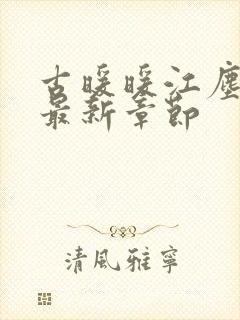 古暖暖江塵
最新章節
清風雅寧